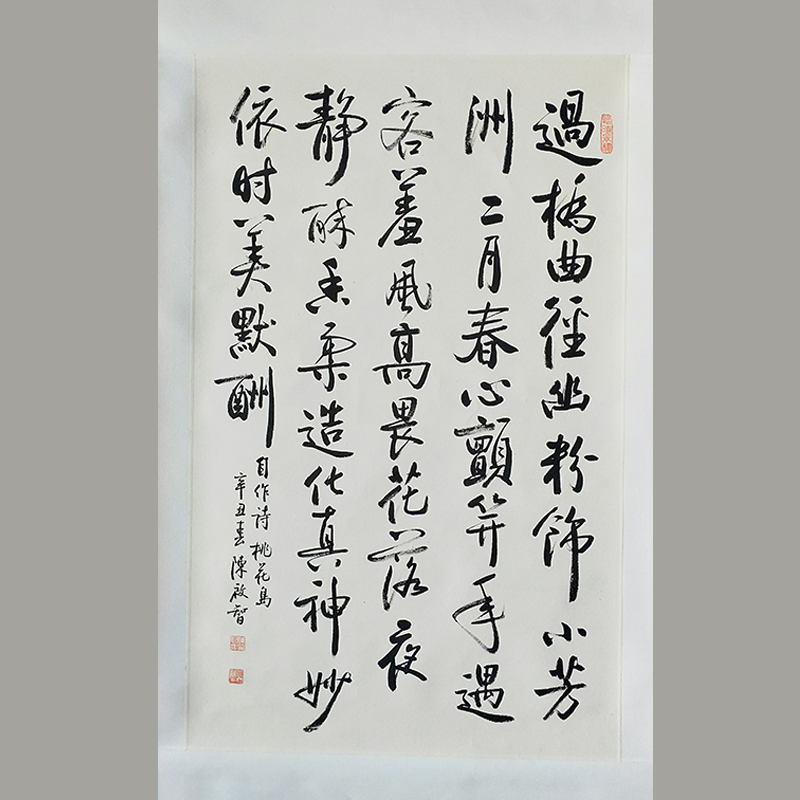 過橋曲徑幽粉飾小芳
洲二月春心顫笄年遇
客羞風高畏花落夜
静酥香柔造化真神妙
依时美默酬
自作诗桃花島
辛丑春陳啟智